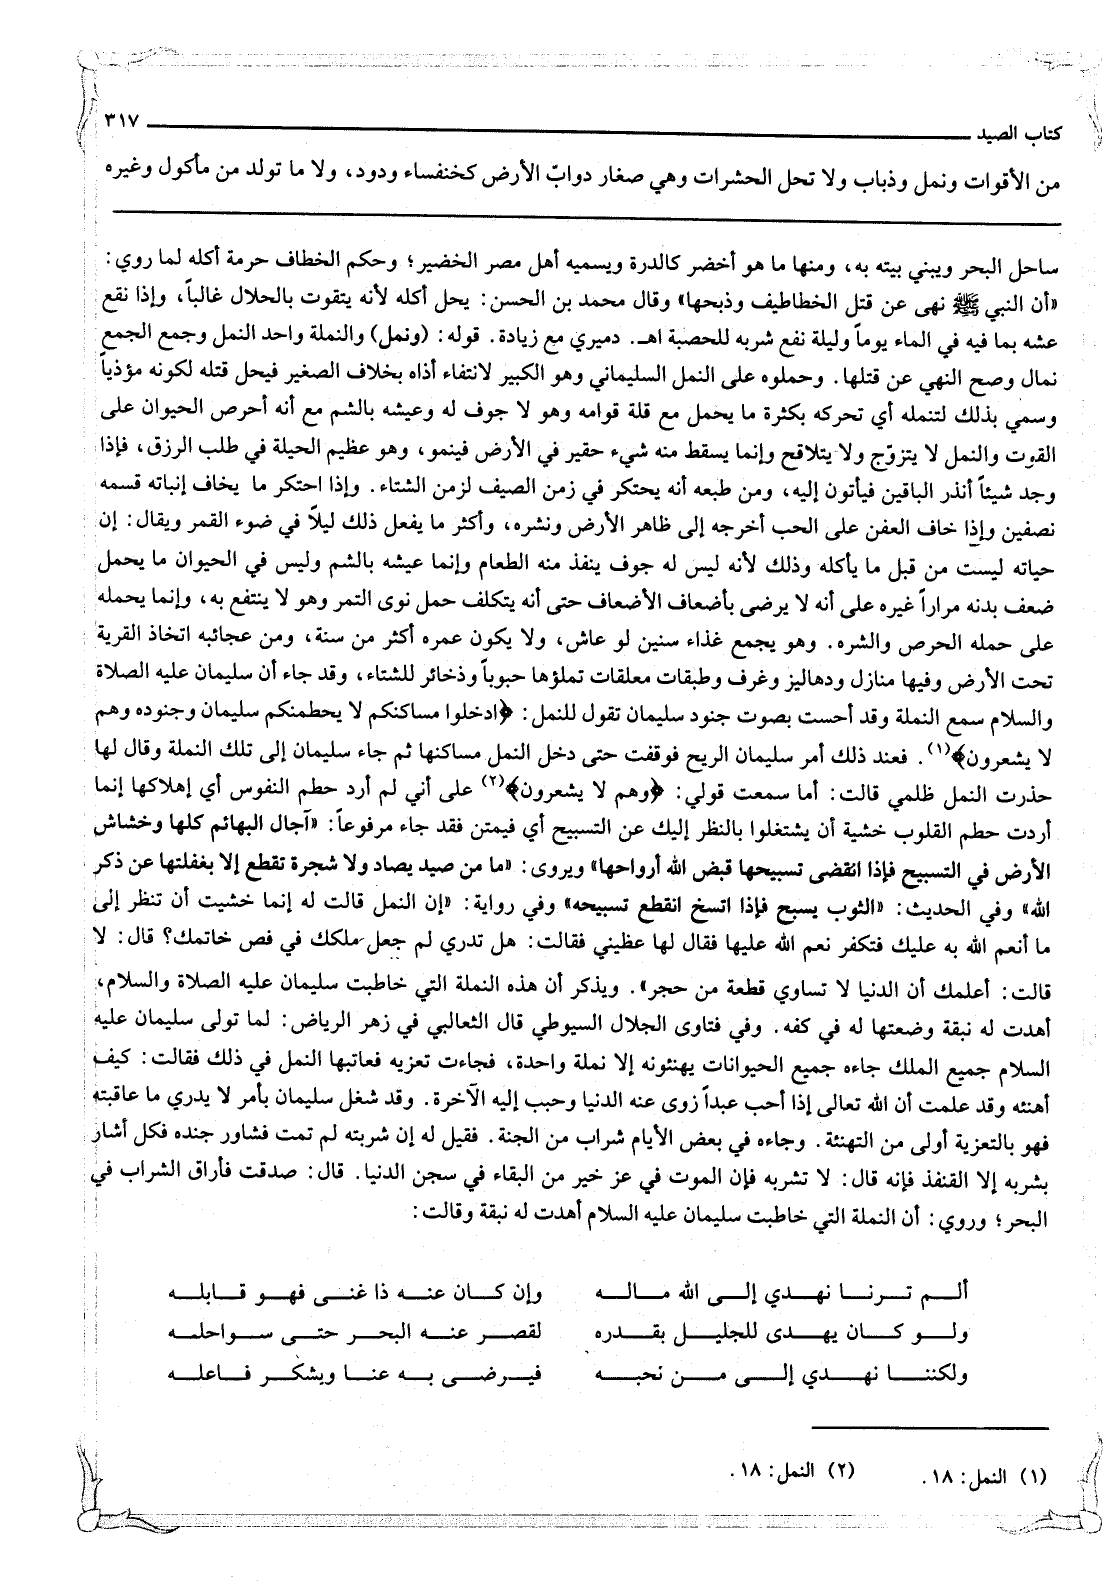 كتاب الصيد ٣١٧
من الأقوات ونمل وذباب ولا تحل الحشرات وهي صغار دوابّ الأرض كخنفساء ودود، ولا ما تولد من مأكول وغيره
ساحل البحر ويبني بيته به، ومنها ما هو أخضر كالدرة ويسميه أهل مصر الخضير؛ وحكم الخطاف حرمة أكله لما روي:
«أن النبي ﷺ نهى عن قتل الخطاطيف وذبحها» وقال محمد بن الحسن: يحل أكله لأنه يتقوت بالحلال غالباً، وإذا نقع
عشه بما فيه في الماء يوماً وليلة نفع شربه للحصبة اهـ. دميري مع زيادة. قوله: (ونمل) والنملة واحد النمل وجمع الجمع
نمال وصح النهي عن قتلها. وحملوه على النمل السليماني وهو الكبير لانتفاء أذاه بخلاف الصغير فيحل قتله لكونه مؤذياً
وسمي بذلك لتنمله أي تحركه بكثرة ما يحمل مع قلة قوامه وهو لا جوف له وعيشه بالشم مع أنه أحرص الحيوان على
القوت والنمل لا يتزوّج ولا يتلاقح وإنما يسقط منه شيء حقير في الأرض فينمو، وهو عظيم الحيلة في طلب الرزق، فإذا
وجد شيئاً أنذر الباقين فيأتون إليه، ومن طبعه أنه يحتكر في زمن الصيف لزمن الشتاء. وإذا احتكر ما يخاف إنباته قسمه
نصفين وإذا خاف العفن على الحب أخرجه إلى ظاهر الأرض ونشره، وأكثر ما يفعل ذلك ليلاً في ضوء القمر ويقال: إن
حياته ليست من قبل ما يأكله وذلك لأنه ليس له جوف ينفذ منه الطعام وإنما عيشه بالشم وليس في الحيوان ما يحمل
ضعف بدنه مراراً غيره على أنه لا يرضى بأضعاف الأضعاف حتى أنه يتكلف حمل نوى التمر وهو لا ينتفع به، وإنما يحمله
على حمله الحرص والشره. وهو يجمع غذاء سنين لو عاش، ولا يكون عمره أكثر من سنة، ومن عجائبه اتخاذ القرية
تحت الأرض وفيها منازل ودهاليز وغرف وطبقات معلقات تملؤها حبوباً وذخائر للشتاء، وقد جاء أن سليمان عليه الصلاة
والسلام سمع النملة وقد أحست بصوت جنود سليمان تقول للنمل: ﴿ادخلوا مساكنكم لا يحطمنكم سليمان وجنوده وهم
لا يشعرون﴾(١). فعند ذلك أمر سليمان الريح فوقفت حتى دخل النمل مساكنها ثم جاء سليمان إلى تلك النملة وقال لها
حذرت النمل ظلمي قالت: أما سمعت قولي: ﴿وهم لا يشعرون﴾(٢) على أني لم أرد حطم النفوس أي إهلاكها إنما
أردت حطم القلوب خشية أن يشتغلوا بالنظر إليك عن التسبيح أي فيمتن فقد جاء مرفوعاً: «آجال البهائم كلها وخشاش
الأرض في التسبيح فإذا انقضى تسبيحها قبض الله أرواحها» ويروى: «ما من صيد يصاد ولا شجرة تقطع إلا بغفلتها عن ذكر
الله» وفي الحديث: «الثوب يسبح فإذا اتسخ انقطع تسبيحه» وفي رواية: «إن النمل قالت له إنما خشيت أن تنظر إلى
ما أنعم الله به عليك فتكفر نعم الله عليها فقال لها عظيني فقالت: هل تدري لم جعل ملكك في فص خاتمك؟ قال: لا
قالت: أعلمك أن الدنيا لا تساوي قطعة من حجر». ويذكر أن هذه النملة التي خاطبت سليمان عليه الصلاة والسلام،
أهدت له نبقة وضعتها له في كفه. وفي فتاوى الجلال السيوطي قال الثعالبي في زهر الرياض: لما تولى سليمان عليه
السلام جميع الملك جاءه جميع الحيوانات يهنئونه إلا نملة واحدة، فجاءت تعزيه فعاتبها النمل في ذلك فقالت: كيف
أهنئه وقد علمت أن الله تعالى إذا أحب عبداً زوى عنه الدنيا وحبب إليه الآخرة. وقد شغل سليمان بأمر لا يدري ما عاقبته
فهو بالتعزية أولى من التهنئة. وجاءه في بعض الأيام شراب من الجنة. فقيل له إن شربته لم تمت فشاور جنده فكل أشار
بشربه إلا القنفذ فإنه قال: لا تشربه فإن الموت في عز خير من البقاء في سجن الدنيا. قال: صدقت فأراق الشراب في
البحر؛ وروي: أن النملة التي خاطبت سليمان عليه السلام أهدت له نبقة وقالت:
ألم ترنا نهدي إلى الله ماله وإن كان عنه ذا غنى فهو قابله
ولو كان يهدى للجليل بقدره لقصر عنه البحر حتى سواحله
ولكننا نهدي إلى من نحبه فيرضى به عنا ويشكر فاعله
(١) النمل: ١٨. (٢) النمل: ١٨.